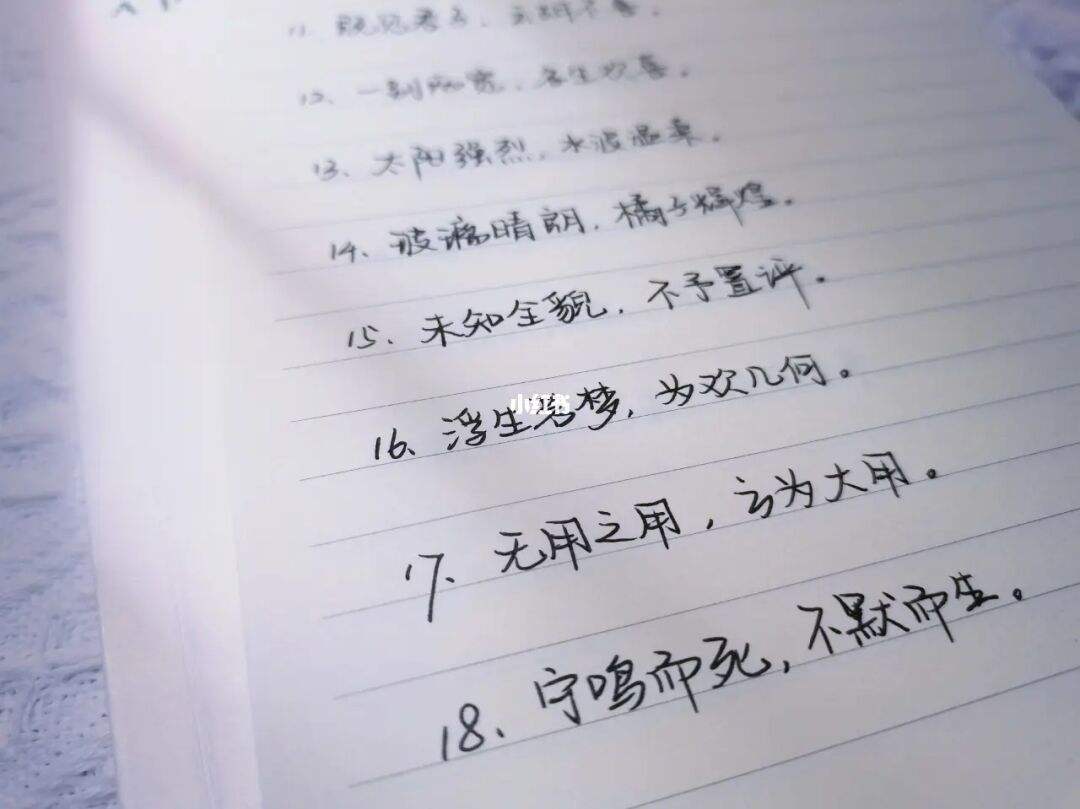 11、既见君子，云胡不喜。
12、一刻
13、太阳强烈，水波温柔。
14、玻璃晴朗，橘子辉煌。
15、未知全貌，不予置评。
16、浮生若梦，为欢几何。
小红书
17、无用之用，方为大用。
18、宁鸣而死，不默而生。